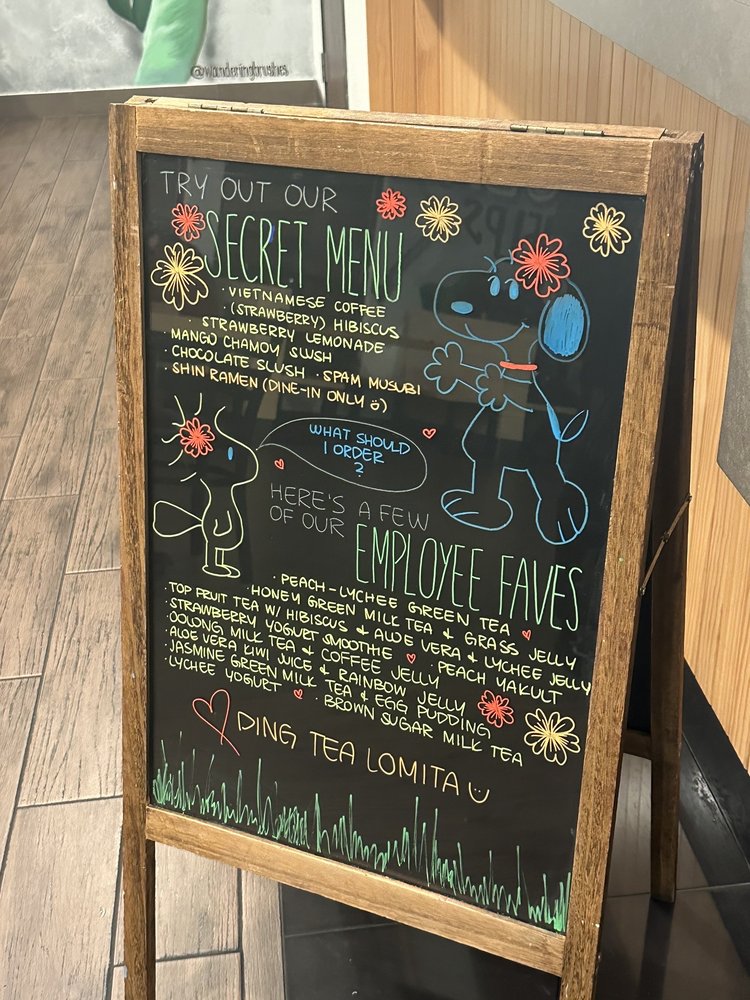 @wanderingbrushes
TRY OUT OUR
SECRET MENU
· VIETNAMESE COFFEE
· (STRAWBERRY) HIBISCUS
STRAWBERRY LEMONADE
· MANGO CHAMOY SLUSH
· CHOCOLATE SLUSH · SPAM MUSUBI
· SHIN RAMEN (DINE-IN ONLY ☺)
WHAT SHOULD
I ORDER
?
HERE'S A FEW
OF OUR EMPLOYEE FAVES
· PEACH-LYCHEE GREEN TEA
· HONEY GREEN MILK TEA & GRASS JELLY
TOP FRUIT TEA W/ HIBISCUS & ALOE VERA & LYCHEE JELLY
· STRAWBERRY YOGURT SMOOTHIE ♡ · PEACH YAKULT
· OOLONG MILK TEA & COFFEE JELLY
· ALOE VERA KIWI JUICE & RAINBOW JELLY
· JASMINE GREEN MILK TEA & EGG PUDDING
· LYCHEE YOGURT ♡ · BROWN SUGAR MILK TEA
♡ DING TEA LOMITA ☺